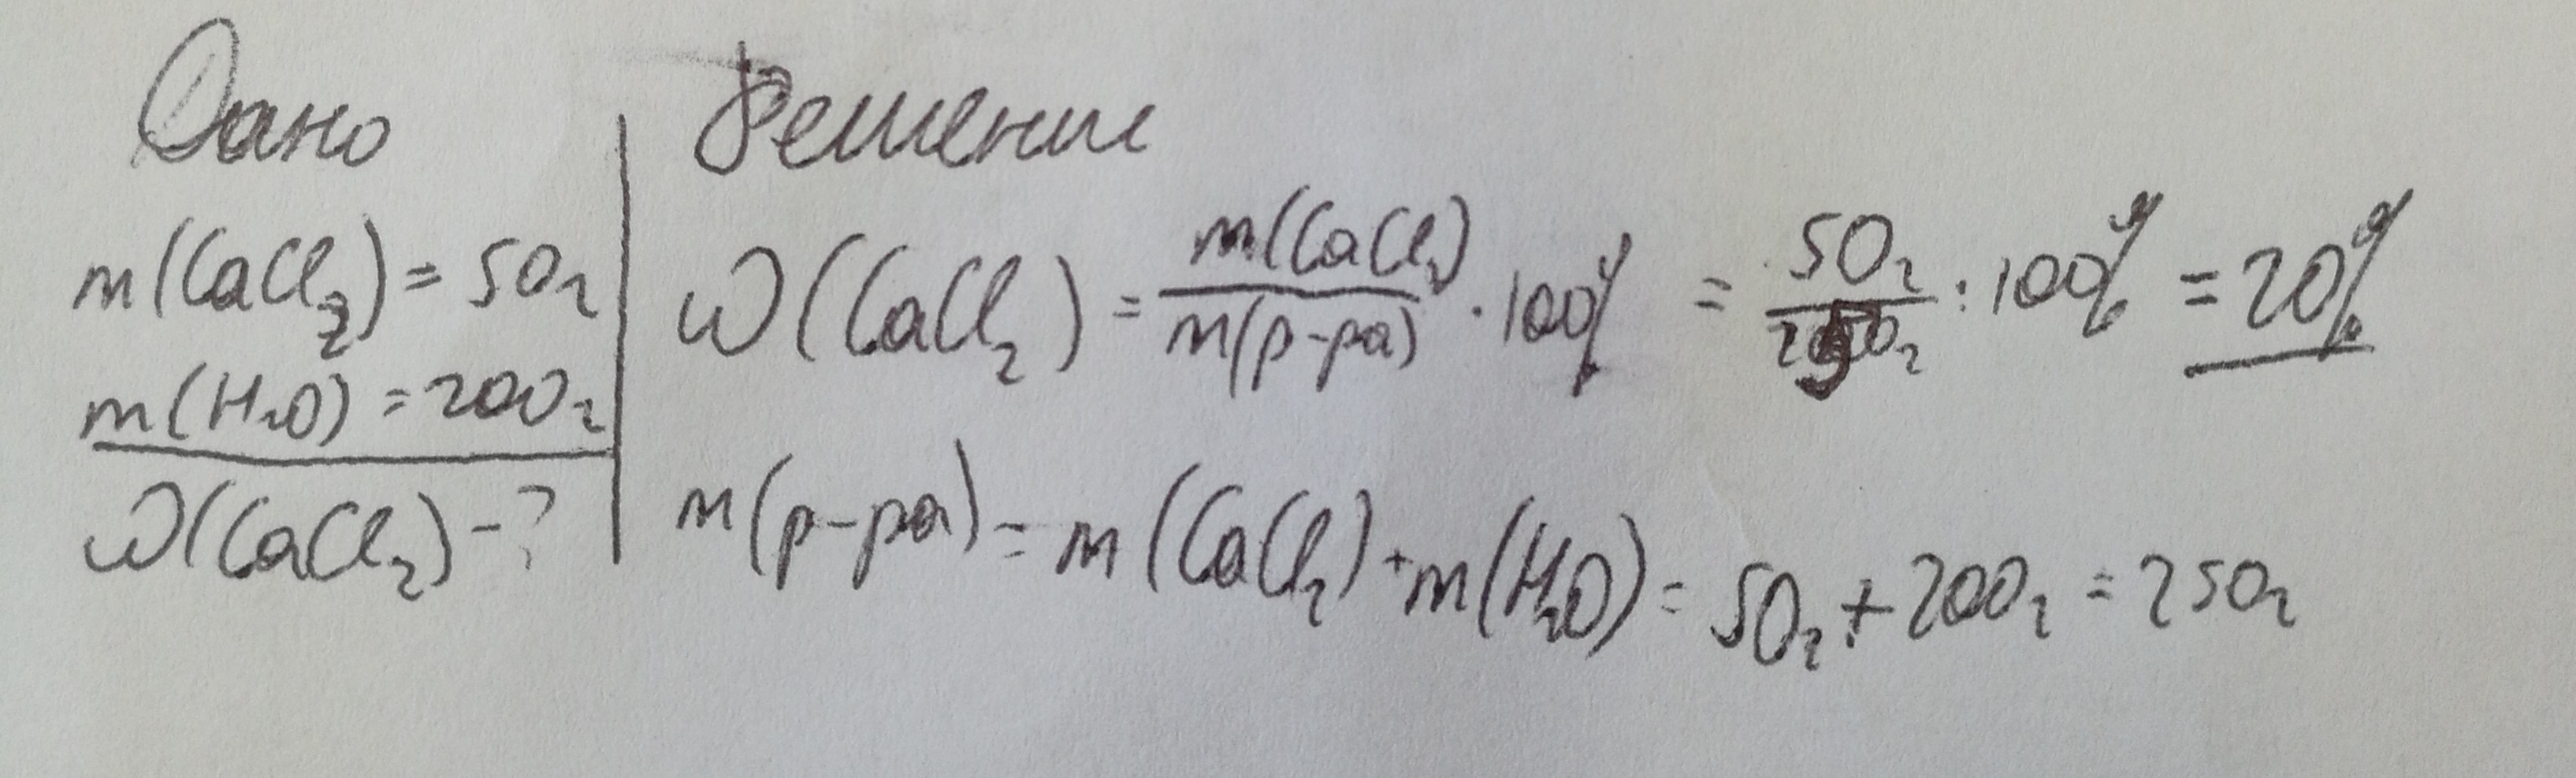 Дано
m(CaCl₂) = 50г
m(H₂O) = 200г
ω(CaCl₂) - ?
Решение
ω(CaCl₂) = m(CaCl₂) / m(р-ра) · 100% = 50г / 250г : 100% = 20%
m(р-ра) = m(CaCl₂) + m(H₂O) = 50г + 200г = 250г